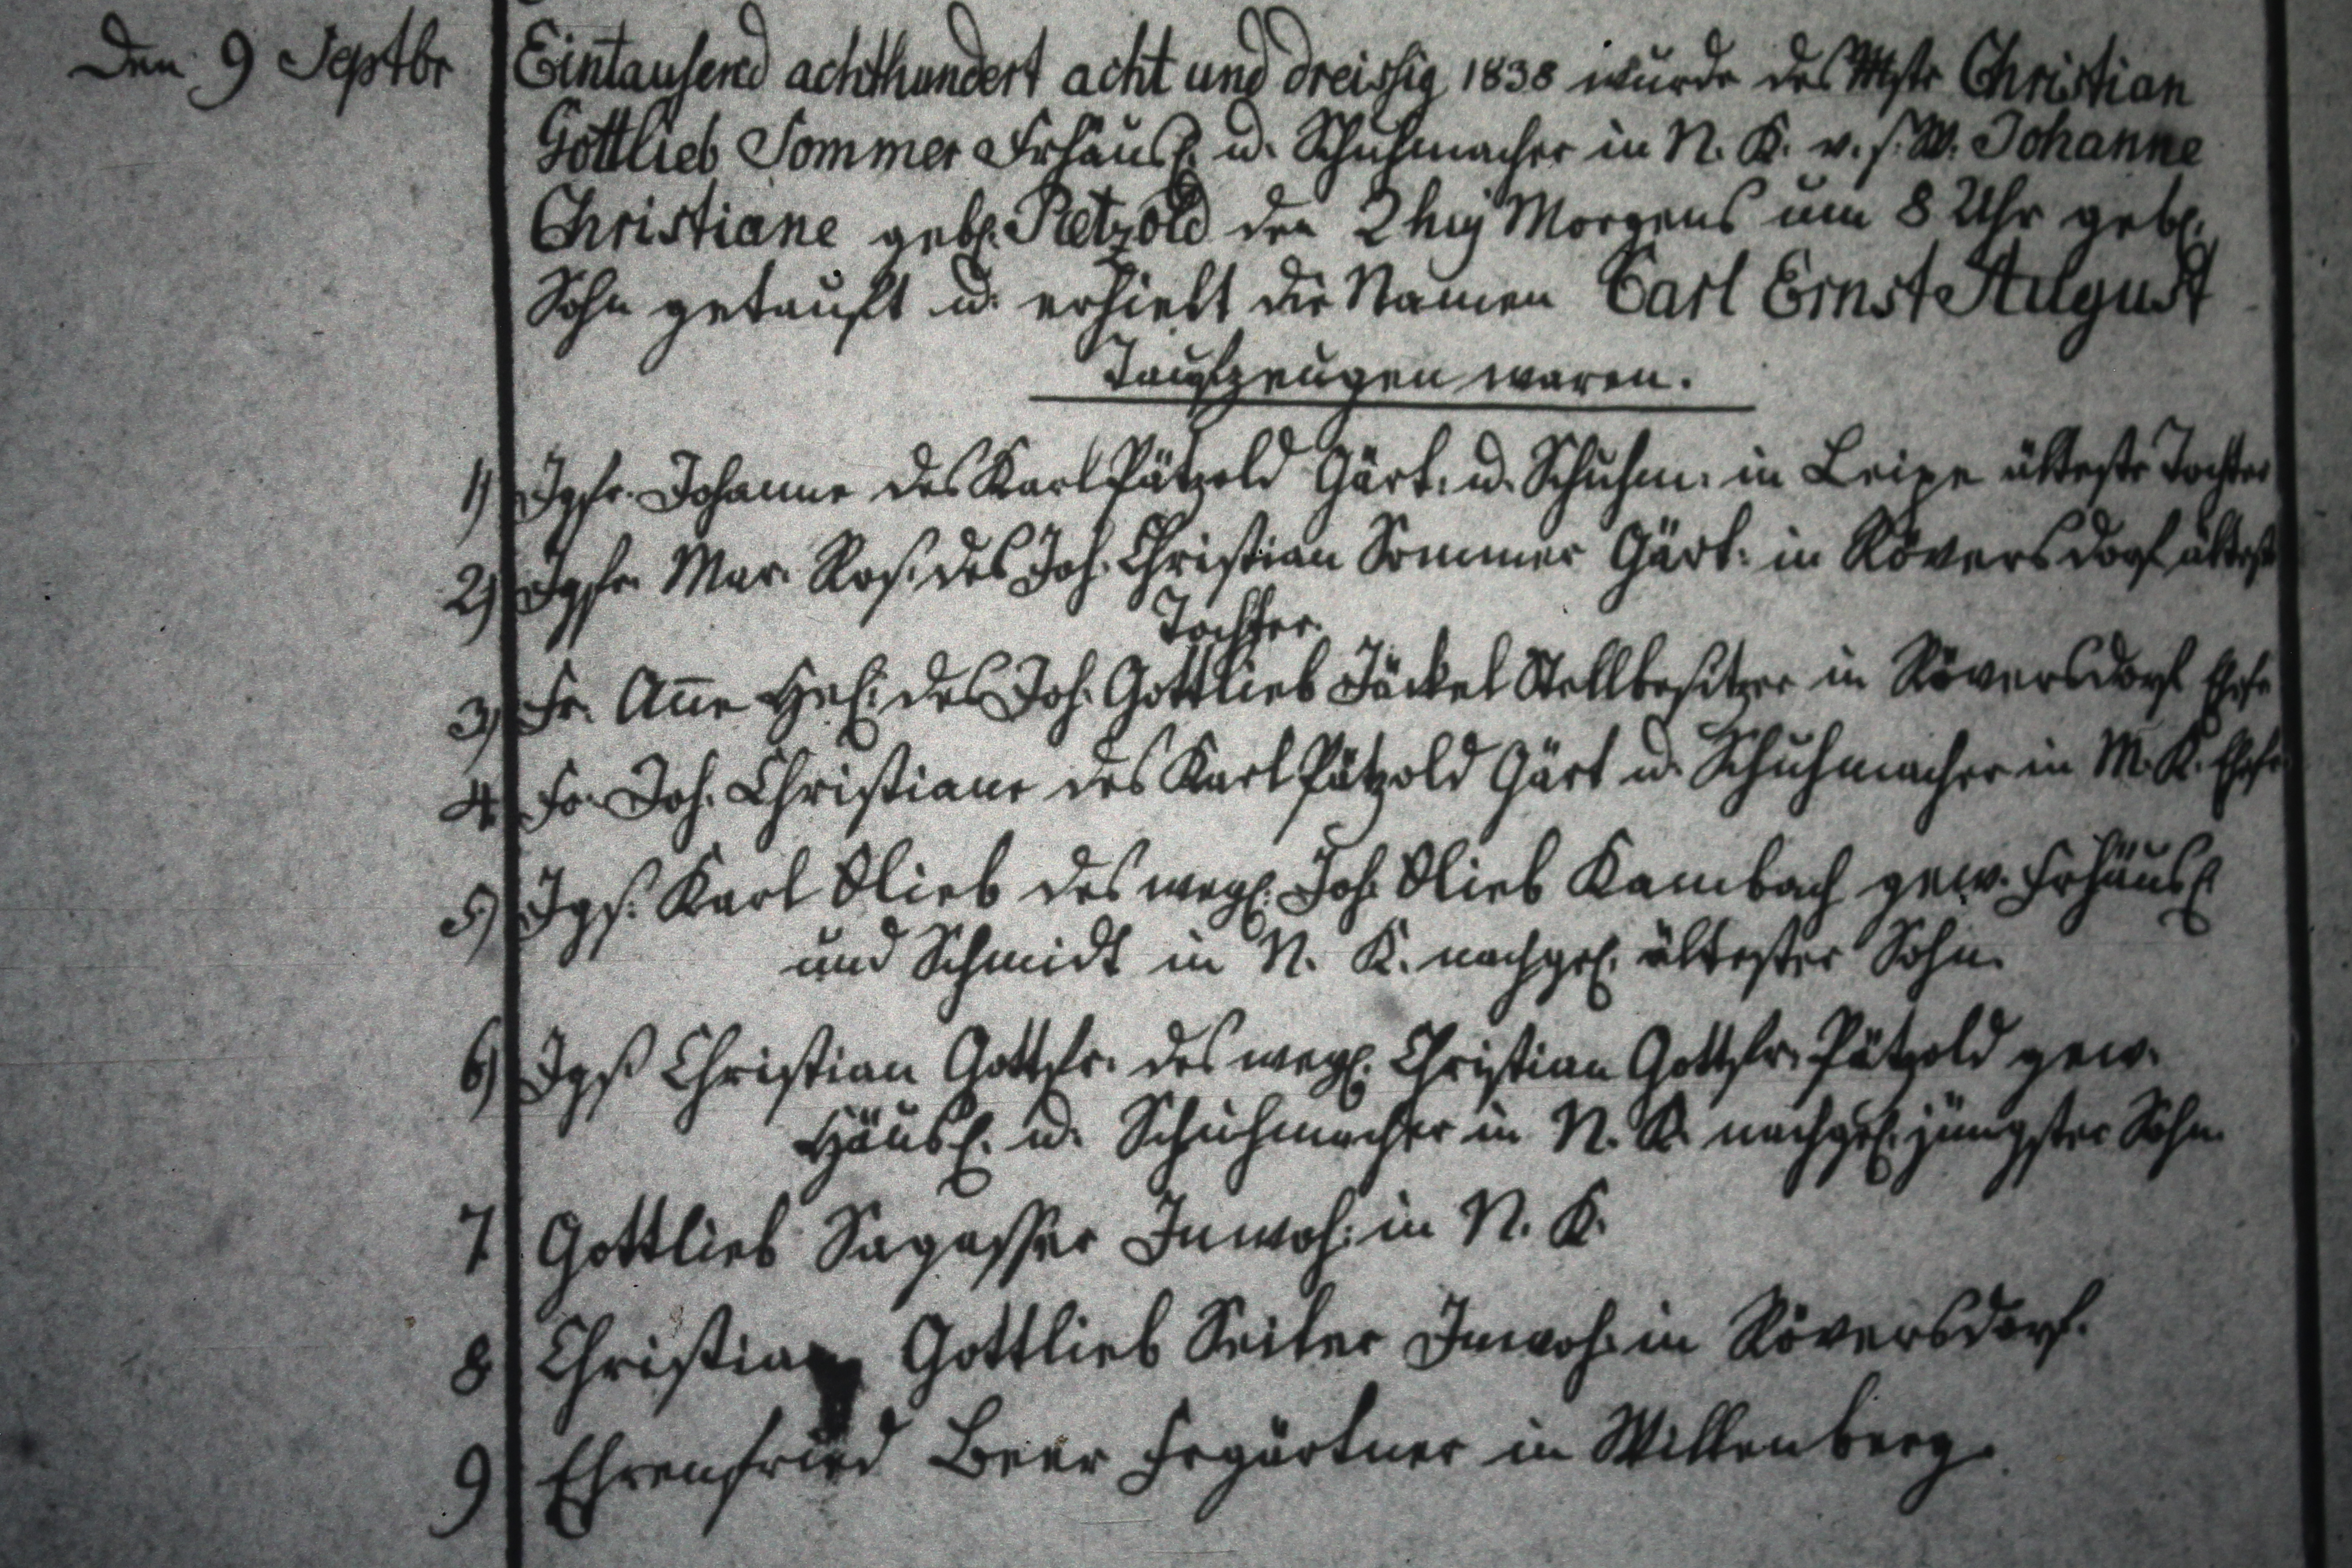 Den 9 Septbr Eintausend achthundert acht und dreissig 1838 wurde des Mstr Christian
Gottlieb Sommer Frhäusl. u. Schuhmacher in N. K. v. s. W. Johanne
Christiane gebl. Petzold den Morgens um 8 Uhr gebl.
Sohn getauft u. erhielt die Namen Carl Ernst August
Taufzeugen waren.
1) Jgfr. Johanne des Karl Pätzold Gärt. u. Schuhm. in Leipe älteste Tochter
2) Jgfr. Mar. Ros. des Joh. Christian Sommer Gärt. in Röversdorf älteste
Tochter.
3) Fr. Añe Hel. des Joh. Gottlieb Jäckel Stellbesitzer in Röversdorf Ehefr
4 Fr. Joh. Christiane des Karl Pätzold Gärt u. Schuhmacher in M. K. Ehefr.
5) Jgs. Karl Glieb des wegl. Joh. Glieb Kambach gew. Frhäusl.
und Schmidt in N. K. nachgel. ältester Sohn.
6) Jgs Christian Gottfr. des wegl. Christian Gottfr. Pätzold gew.
Häusl. u. Schuhmacher in N. K. nachgel. jüngster Sohn.
7 Gottlieb Sagasser Inwoh. in N. K.
8 Christian Gottlieb Seiler Inwoh. in Röversdorf.
9 Ehrenfried Beer Frgärtner in Willenberg.